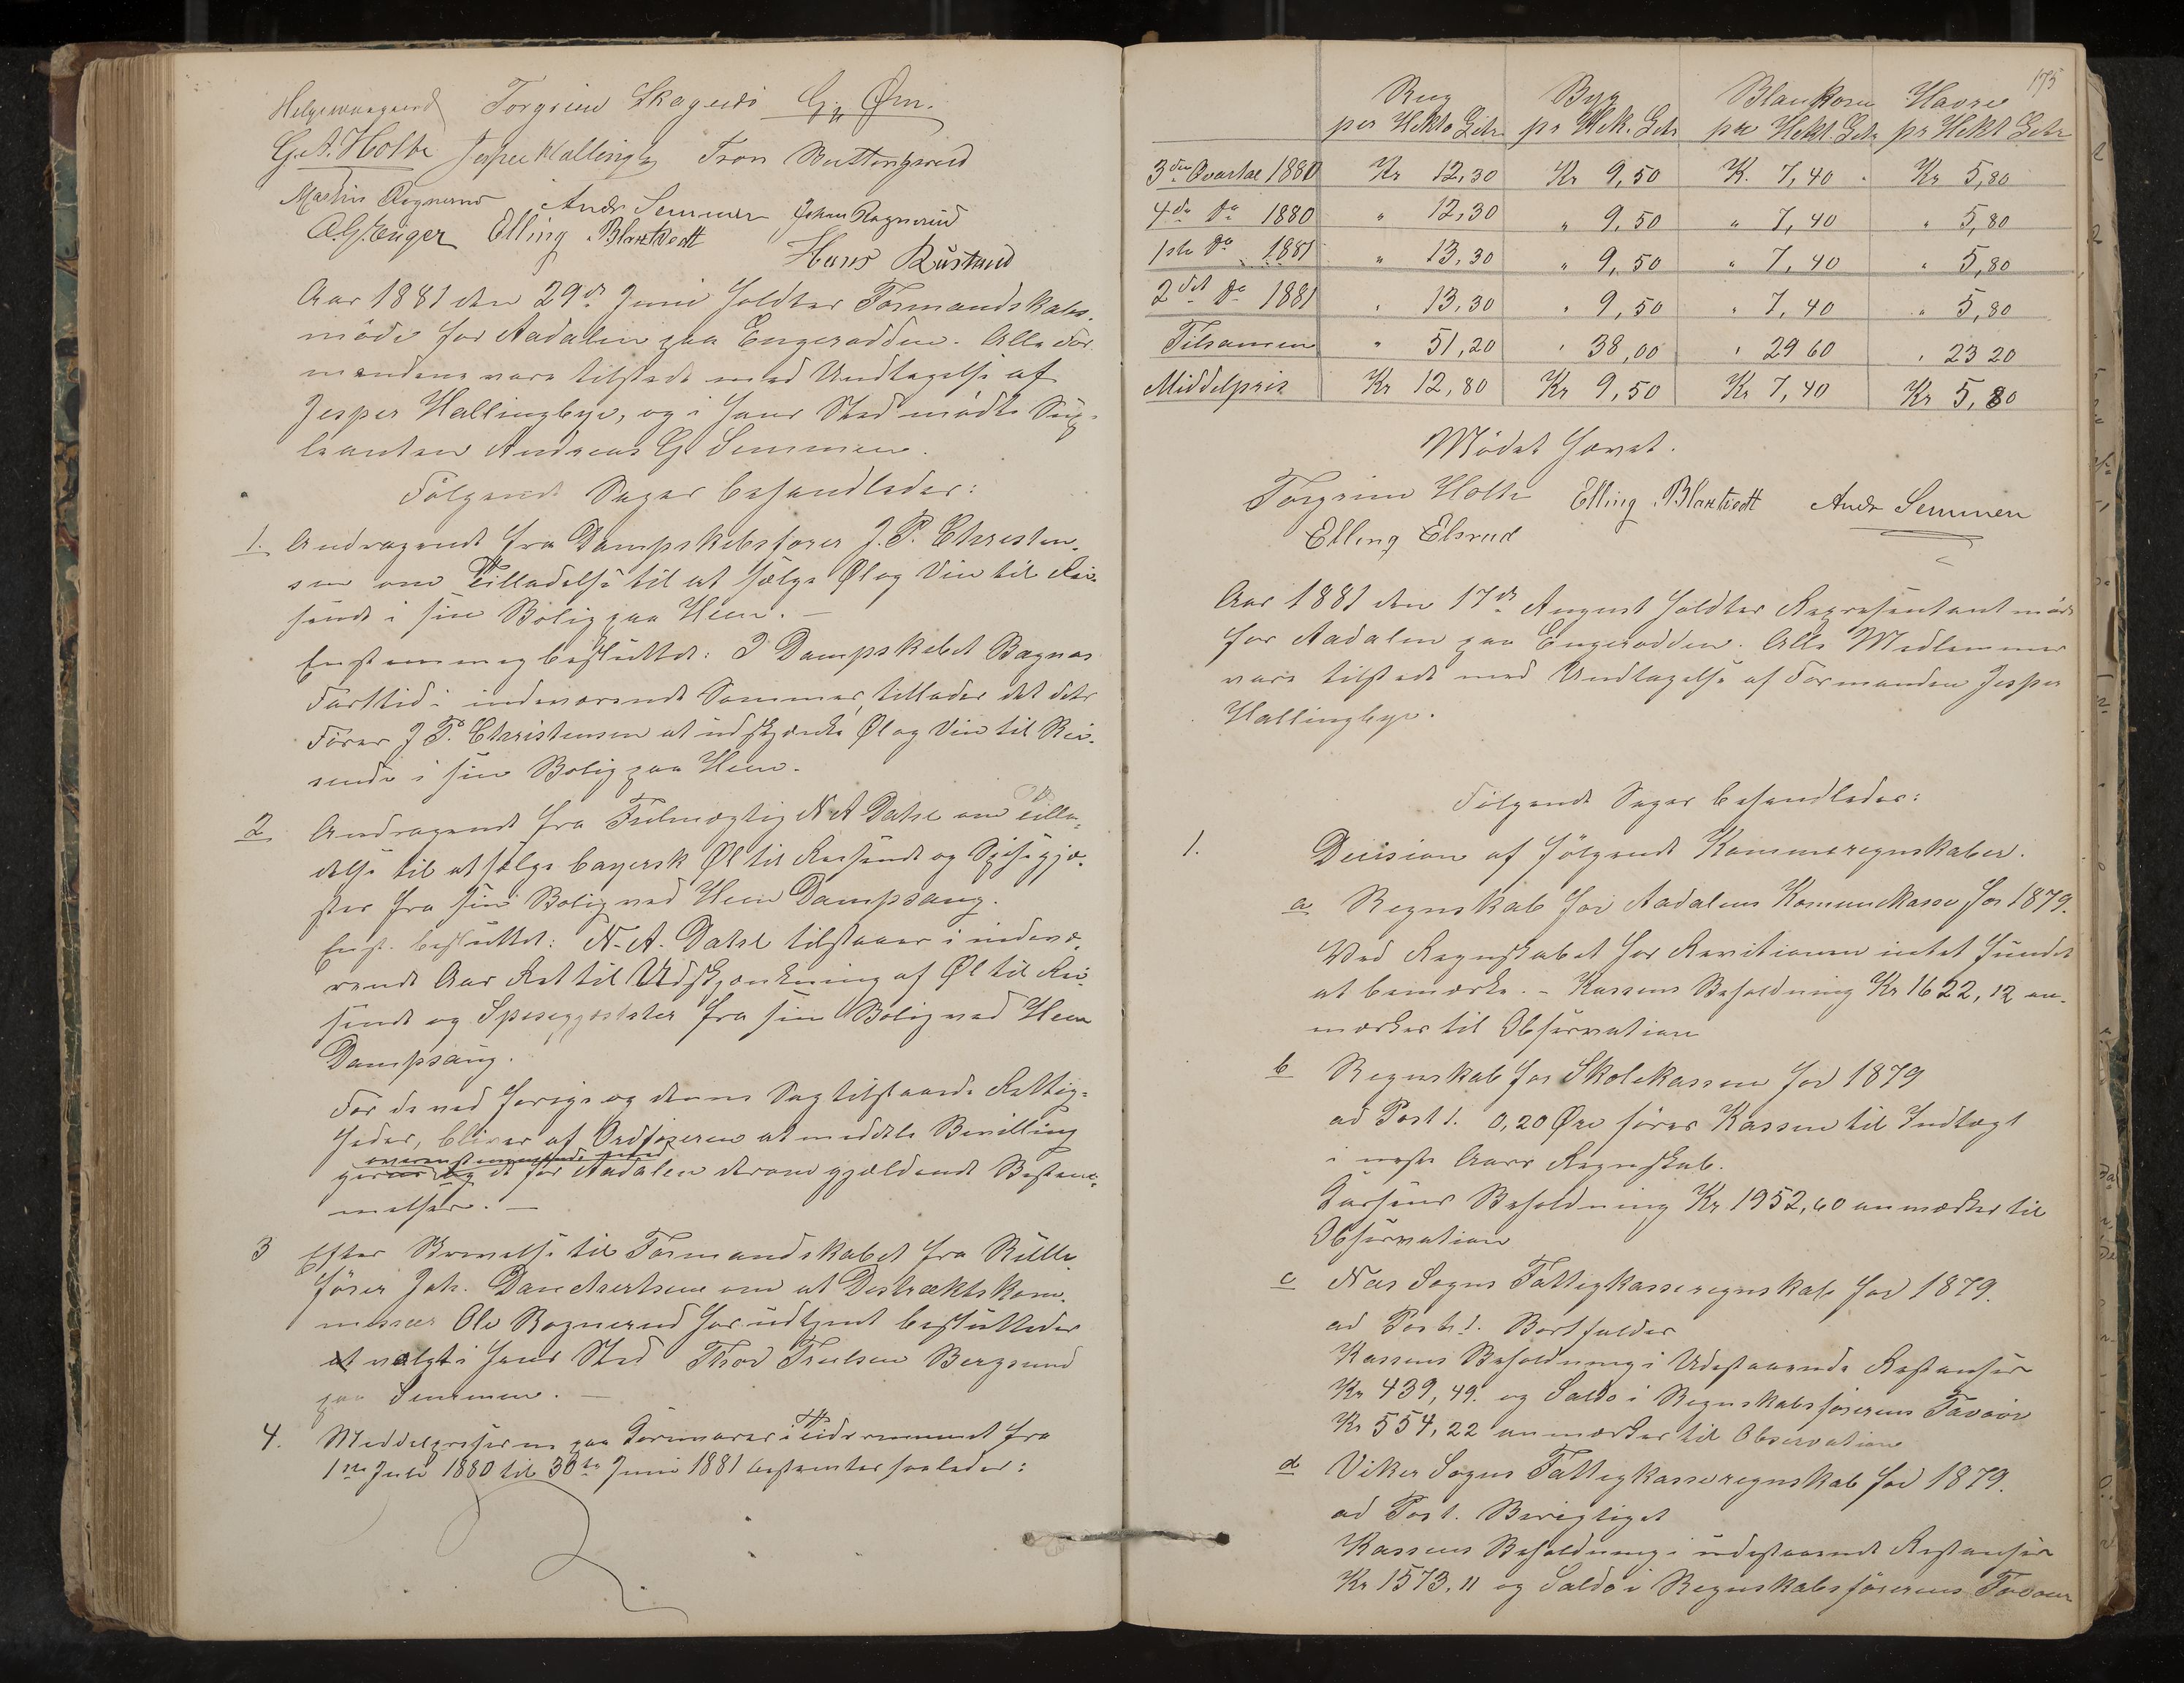 Helgewaagaard Torgrim Skagnæs G. Øen.
G.A. Holte Jesper Hallingby Tron Buttingsrud
Martin Rognerud Andr Semmen Johan Rognerud
A.G. Enger Elling Blaxtvedt
Hans Rustand
Aar 1881 den 29de Juni holdtes Formandskabs-
möde for Aadalen paa Engerodden. Alle For-
mændene vare tilstede med Undtagelse af
Jesper Hallingbye, og i hans Sted mödte Sup-
leanten Andreas G. Semmen.
Fölgende Sager behandledes:
1. Andragende fra Dampskibsförer J. P. Christen-
sen om Tilladelse til at sælge Øl og Vin til Rei-
sende i sin Bolig paa Heen. —
Enstemmig besluttet: I Dampskibet Bægnas
Farttid i indeværende Sommer, tillades det dets
Förer J P. Christensen at udskjænke Øl og Vin til Rei-
sende i sin Bolig paa Heen.
2 Andragende fra Fulmægtig N A Dahl om Tilla-
delse til at sælge bayersk Øl til Reisende og Spisegjæ-
ster fra sin Bolig ved Heen Dampsaug.
Enst. besluttet: N. A. Dahl tilstaaes i indevæ-
rende Aar Ret til Udskjænkning af Øl til Rei-
sende og Spisegjester fra sin Bolig ved Heen
Dampsaug.
For de ved forrige og denne Sag tilstaaede Rettig-
heder, bliver af Ordföreren at meddele Bevilling
overensstemmende med
de for Aadalen derom gjældende Bestem-
melser. —
3 Efter Skrivelse til Formandskabet fra Rulle-
förer Joh. Danchertsen om at Distriktskom-
missær Ole Rognerud har udtjent besluttedes
at valgt i hans Sted Thor Trulsen Bergsund
paa Semmen. —
4. Middelpriserne paa Kornvarer i Tidsrummet fra
1ste Juli 1880 til 30te Juni 1881 bestemtes saaledes:
175
Rug Byg Blankorn Havre
per Hekto Litr pr Hek. Litr pr Hekt. Litr pr Hekt Litr
3die Qvartal 1880 Kr 12,30 Kr 9,50 K. 7,40 Kr 5,80
4de do 1880 " 12,30 " 9,50 " 7,40 " 5,80
1ste do 1881 " 13,30 " 9,50 " 7,40 " 5,80
2det do 1881 " 13,30 " 9,50 " 7,40 " 5,80
Tilsamen " 51,20 " 38,00 " 29 60 " 23 20
Middelpris Kr 12,80 Kr 9,50 Kr 7,40 Kr 5,80
Mödet hævet.
Torgrim Holte Elling Blaxtvedt Andr Semmen
Elling Elsrud
Aar 1881 den 17de August holdtes Representantmöde
for Aadalen paa Engerodden. Alle Medlemmer
vare tilstede med Undtagelse af Formanden Jesper
Hallingbye.
Fölgende Sager behandledes:
1. Decision af fölgende Kommuneregnskaber.
a Regnskab for Aadalens Komunekasse for 1879.
Ved Regnskabet har Revitionen intet fundet
at bemærke. - Kassens Beholdning Kr 1622,12 an-
mærkes til Observation
b Regnskab for Skolekassen for 1879
ad Post 1. 0,20 Øre föres Kassen til Indtægt
i neste Aars Regnskab.
Kassens Beholdning Kr 1952,60 anmærkes til
Observation
c Næs Sogns Fattigkasseregnskab for 1879.
ad Post 1. Bortfalder
Kassens Beholdning i Udestaaende Restanser
Kr 439,49. og Saldo i Regnskabsförerens Favör
Kr 554,22 anmærkes til Observation
d Viker Sogns Fattigkasseregnskab for 1879.
ad Post. Berigtiget
Kassens Beholdning i udestaaende Restanser
Kr 1573.11 og Saldo i Regnskabsförerens Favour